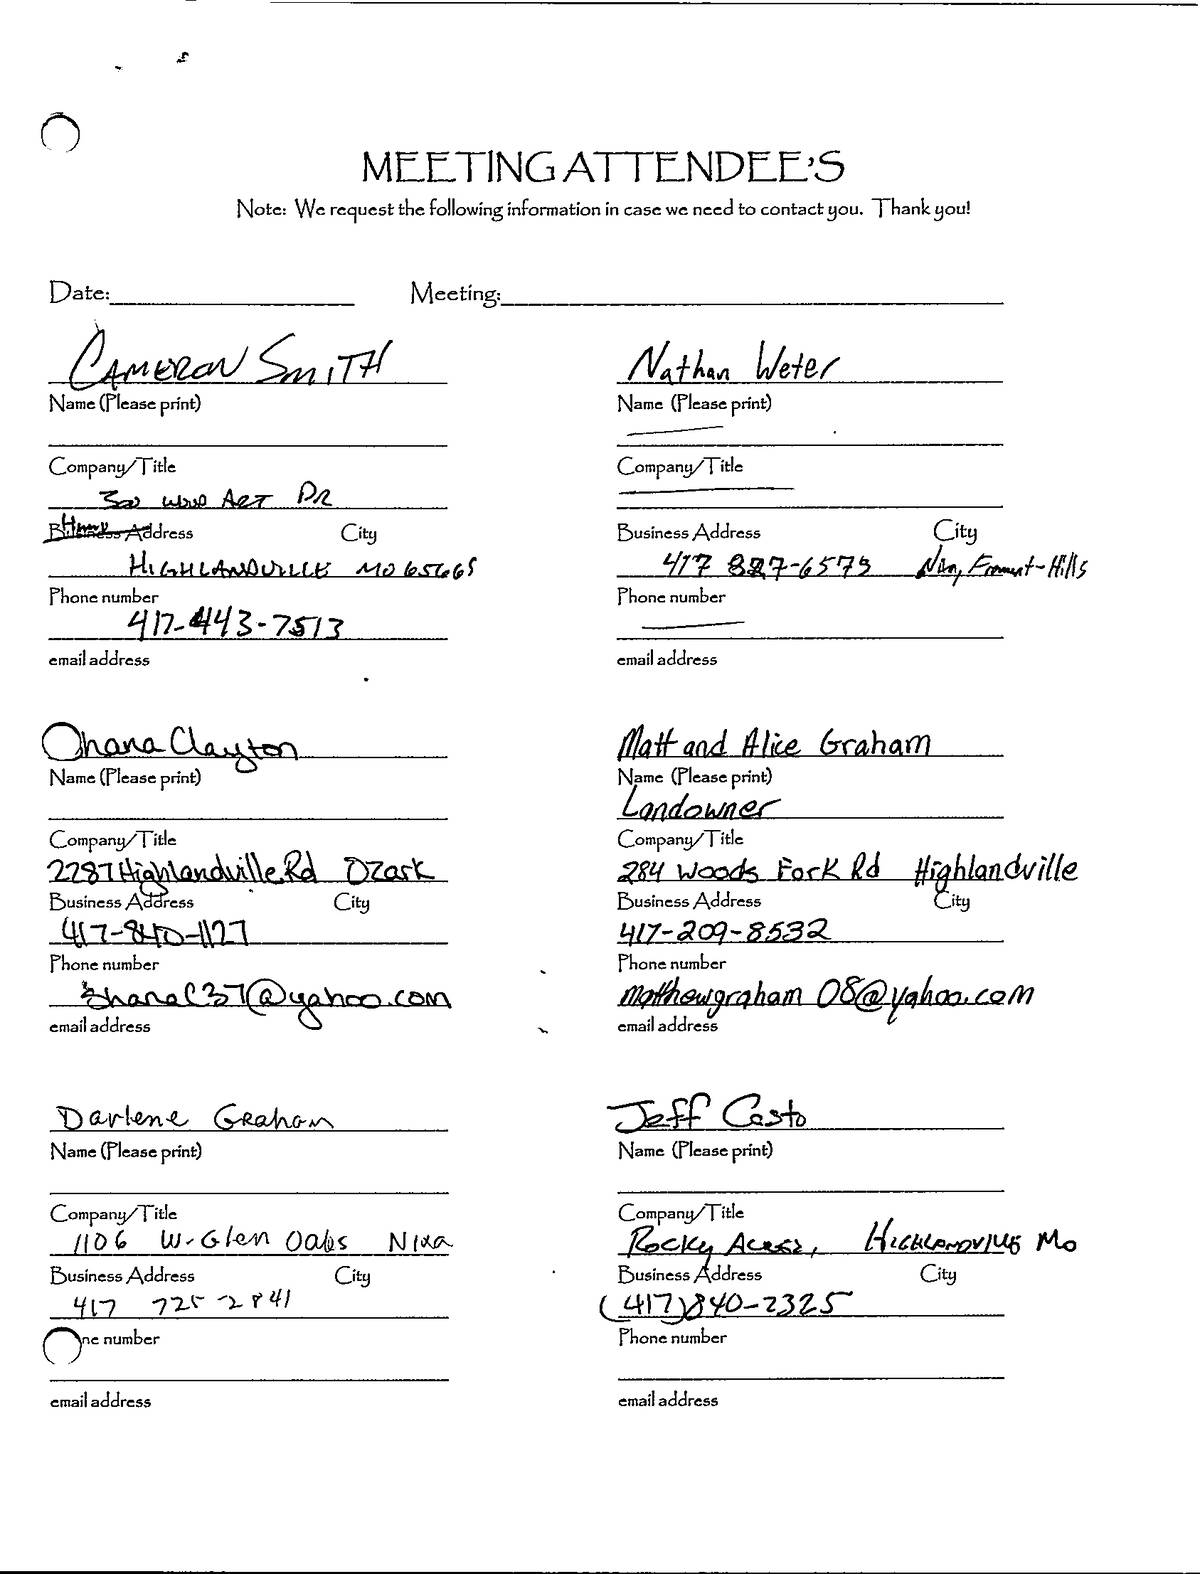 MEETING ATTENDEE'S
Note: We request the following information in case we need to contact you. Thank you!
Date: Meeting:
CAMERON SMITH
Name (Please print)
Company/Title
300 WOOD ART DR
Home Address City
HIGHLANDVILLE MO 65669
Phone number
417-443-7513
email address
Nathan Weter
Name (Please print)
Company/Title
Business Address City
417 827-6575 Nixa, Fremont-Hills
Phone number
email address
Shana Clayton
Name (Please print)
Company/Title
2287 Highlandville Rd Ozark
Business Address City
417-840-1127
Phone number
ShanaC37@yahoo.com
email address
Matt and Alice Graham
Name (Please print)
Landowner
Company/Title
284 Woods Fork Rd Highlandville
Business Address City
417-209-8532
Phone number
matthewgraham08@yahoo.com
email address
Darlene Graham
Name (Please print)
Company/Title
1106 W. Glen Oaks Nixa
Business Address City
417 725-2841
ne number
email address
Jeff Casto
Name (Please print)
Company/Title
ROCKY ACRES, HIGHLANDVILLE Mo
Business Address City
(417) 840-2325
Phone number
email address